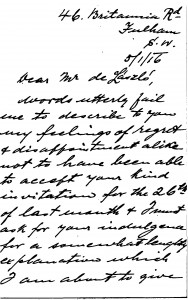 46. Britannia Rd
Fulham
S.W.
5/1/16
Dear Mr de László,
words utterly fail
me to describe to you
my feelings of regret
& disappointment alike
not to have been able
to accept your kind
invitation for the 26th
of last month & I must
ask for your indulgence
for a somewhat lengthy
explanation which
I am about to give